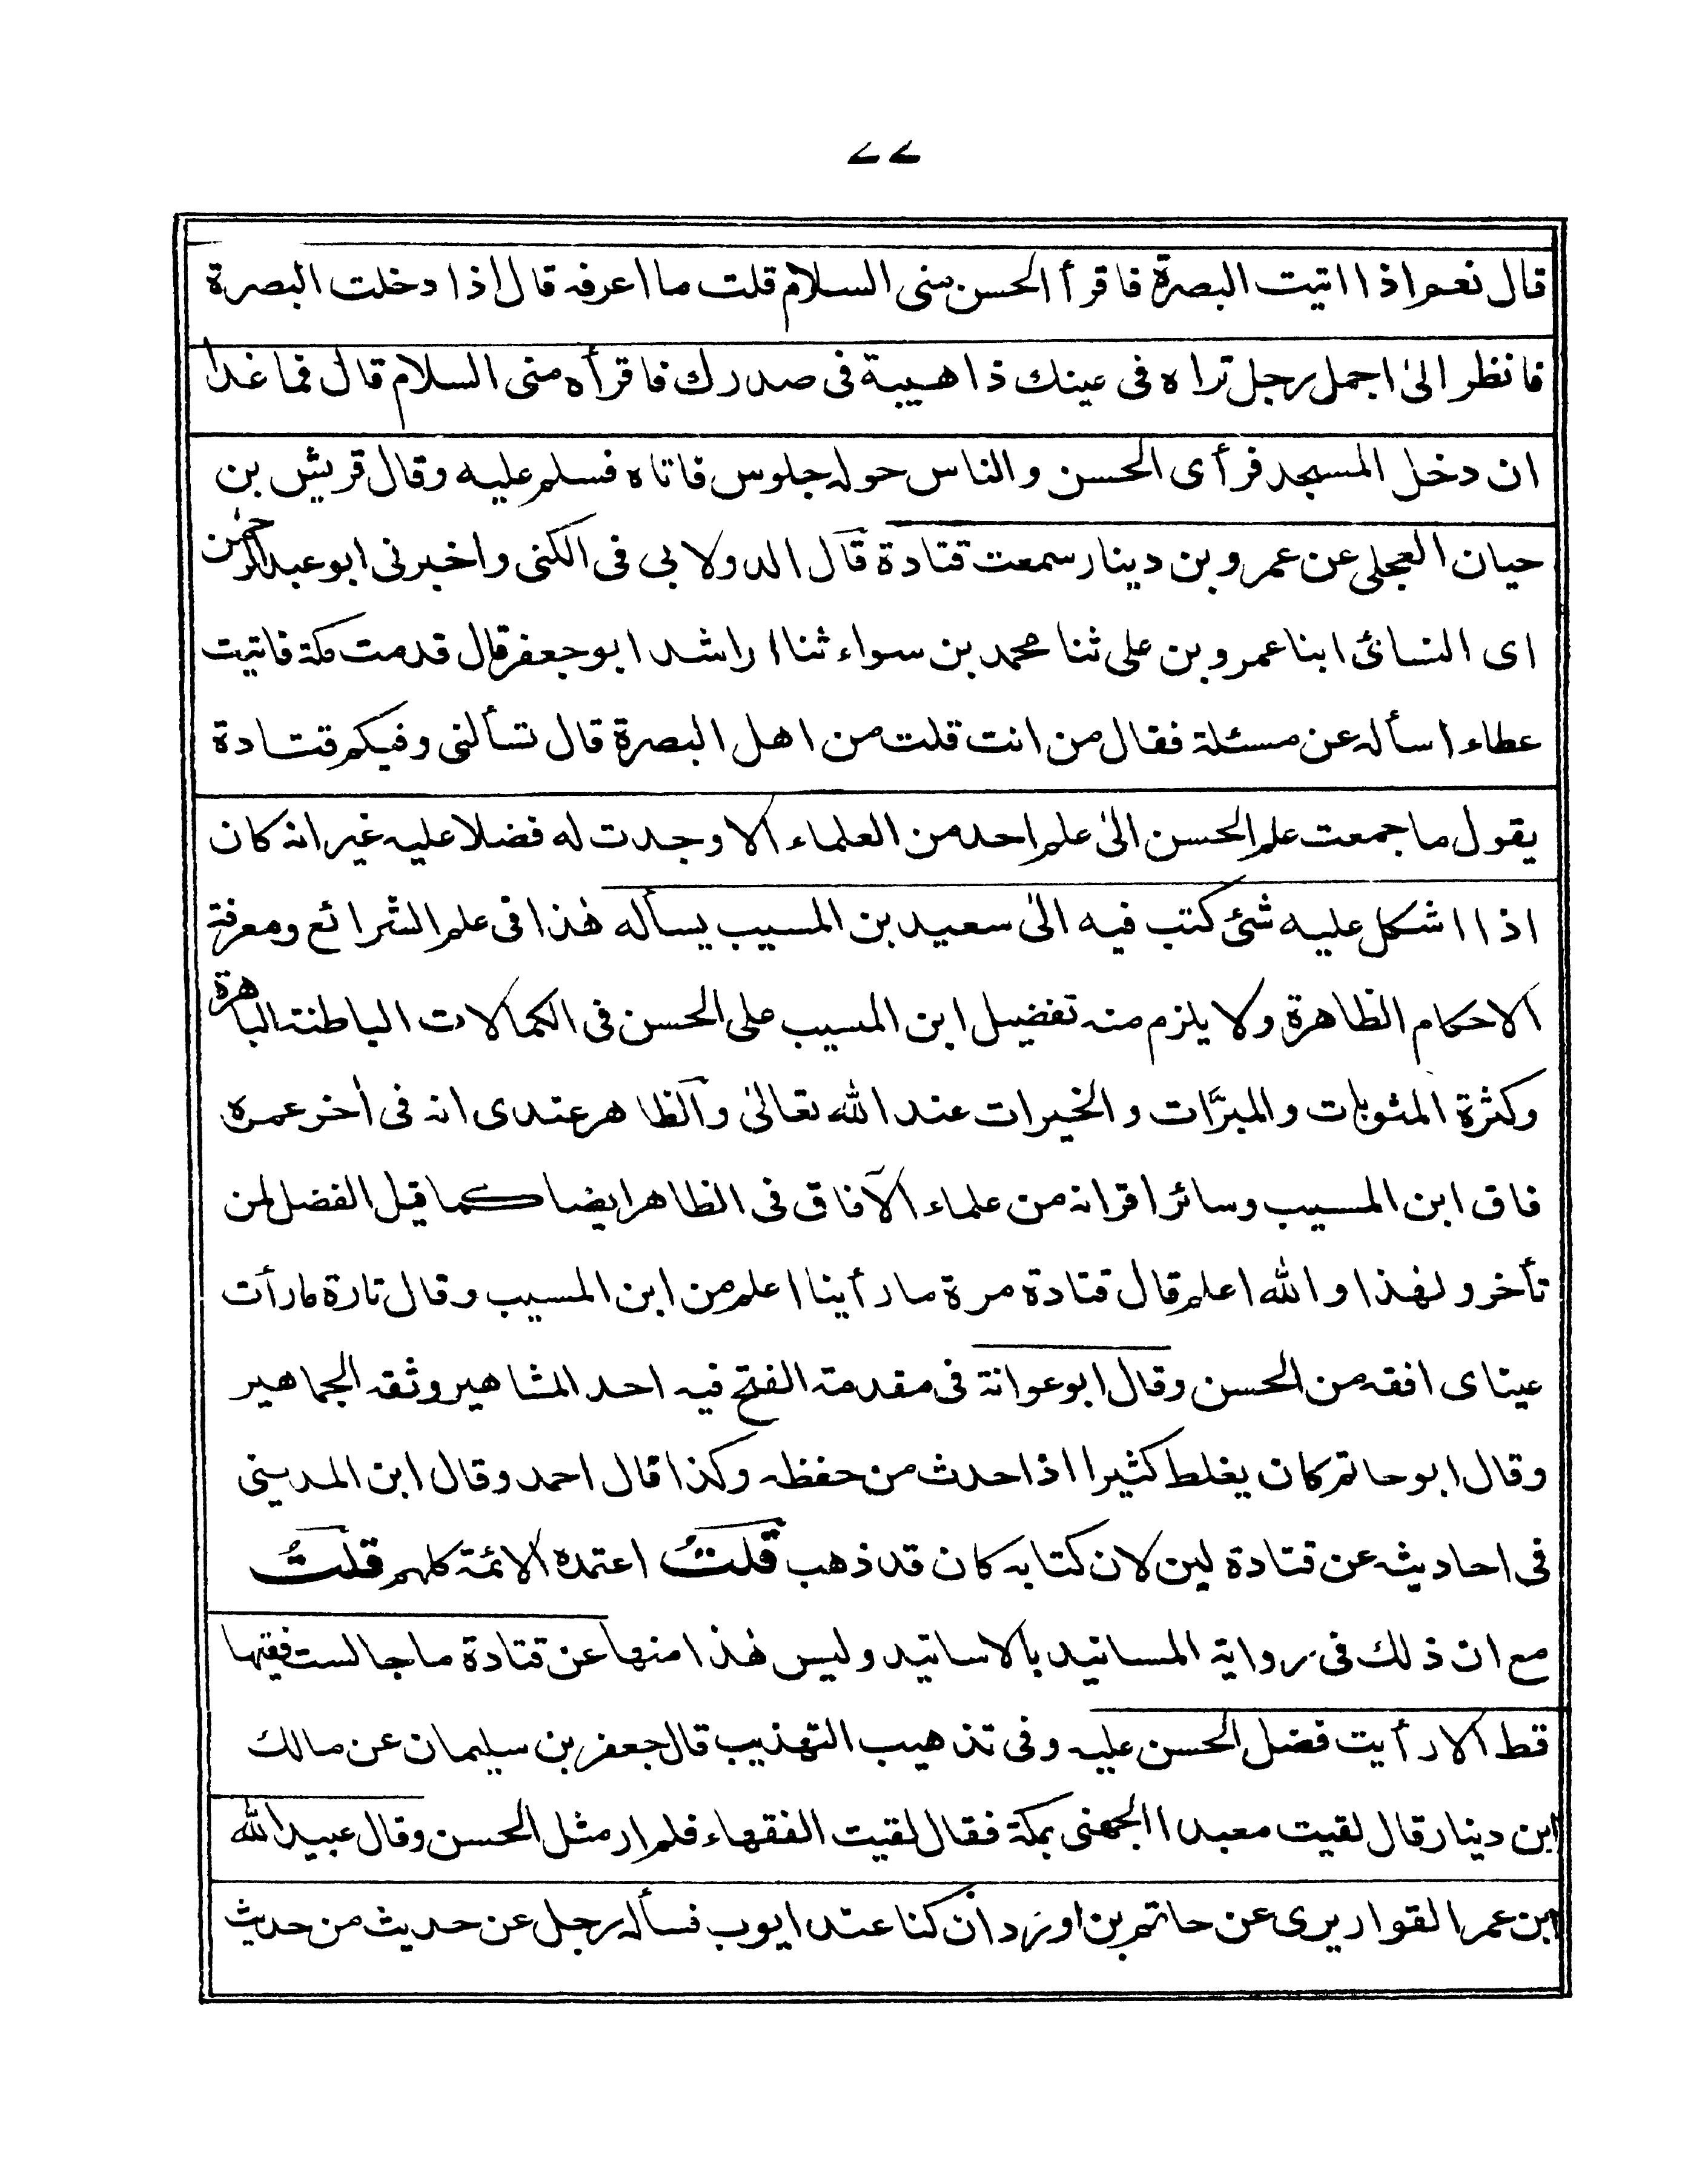 ۷۷
قال نعم اذا اتيت البصرة فاقرأ الحسن منى السلام قلت ما اعرفه قال اذا دخلت البصرة
فانظر الىٰ اجمل رجل تراه فى عينك ذا هيبة فى صدرك فاقرأه منى السلام قال فما غدا
ان دخل المسجد فرأى الحسن والناس حوله جلوس فاتاه فسلم عليه وقال قريش بن
حيان العجلى عن عمرو بن دينار سمعت قتادة قال الدولابى فى الكنى واخبرنى ابو عبدالرحمٰن
اى النسائى ابنا عمرو بن على ثنا محمد بن سواء ثنا راشد ابو جعفر قال قدمت مكة فاتيت
عطاء اسأله عن مسئلة فقال من انت قلت من اهل البصرة قال تسألنى وفيكم قتادة
يقول ما جمعت علم الحسن الىٰ علم احد من العلماء الا وجدت له فضلا عليه غير انه كان
اذا اشكل عليه شئ كتب فيه الىٰ سعيد بن المسيب يسأله هٰذا فى علم الشرائع ومعرفة
الاحكام الظاهرة ولا يلزم منه تفضيل ابن المسيب على الحسن فى الكمالات الباطنة الباهرة
وكثرة المثوبات والمبرّات والخيرات عند الله تعالىٰ والظاهر عندى انه فى اٰخر عمره
فاق ابن المسيب وسائر اقرانه من علماء الآفاق فى الظاهر ايضا كما قيل الفضل لمن
تأخر ولهٰذا والله اعلم قال قتادة مرة ما رأينا اعلم من ابن المسيب وقال تارة ما رأت
عيناى افقه من الحسن وقال ابو عوانة فى مقدمة الفتح فيه احد المشاهير وثقه الجماهير
وقال ابو حاتم كان يغلط كثيرا اذا حدث من حفظه وكذا قال احمد وقال ابن المدينى
فى احاديثه عن قتادة لين لان كتابه كان قد ذهب قلتُ اعتمده الائمة كلهم قلتُ
مع ان ذلك فى رواية المسانيد بالاسانيد وليس هٰذا منها عن قتادة ما جالست فقيها
قط الا رأيت فضل الحسن عليه وفى تذهيب التهذيب قال جعفر بن سليمان عن مالك
ابن دينار قال لقيت معبدا الجهنى بمكة فقال لقيت الفقهاء فلم ار مثل الحسن وقال عبيد الله
ابن عمر القواريرى عن حاتم بن اوزدان كنا عند ايوب فسأله رجل عن حديث من حديث